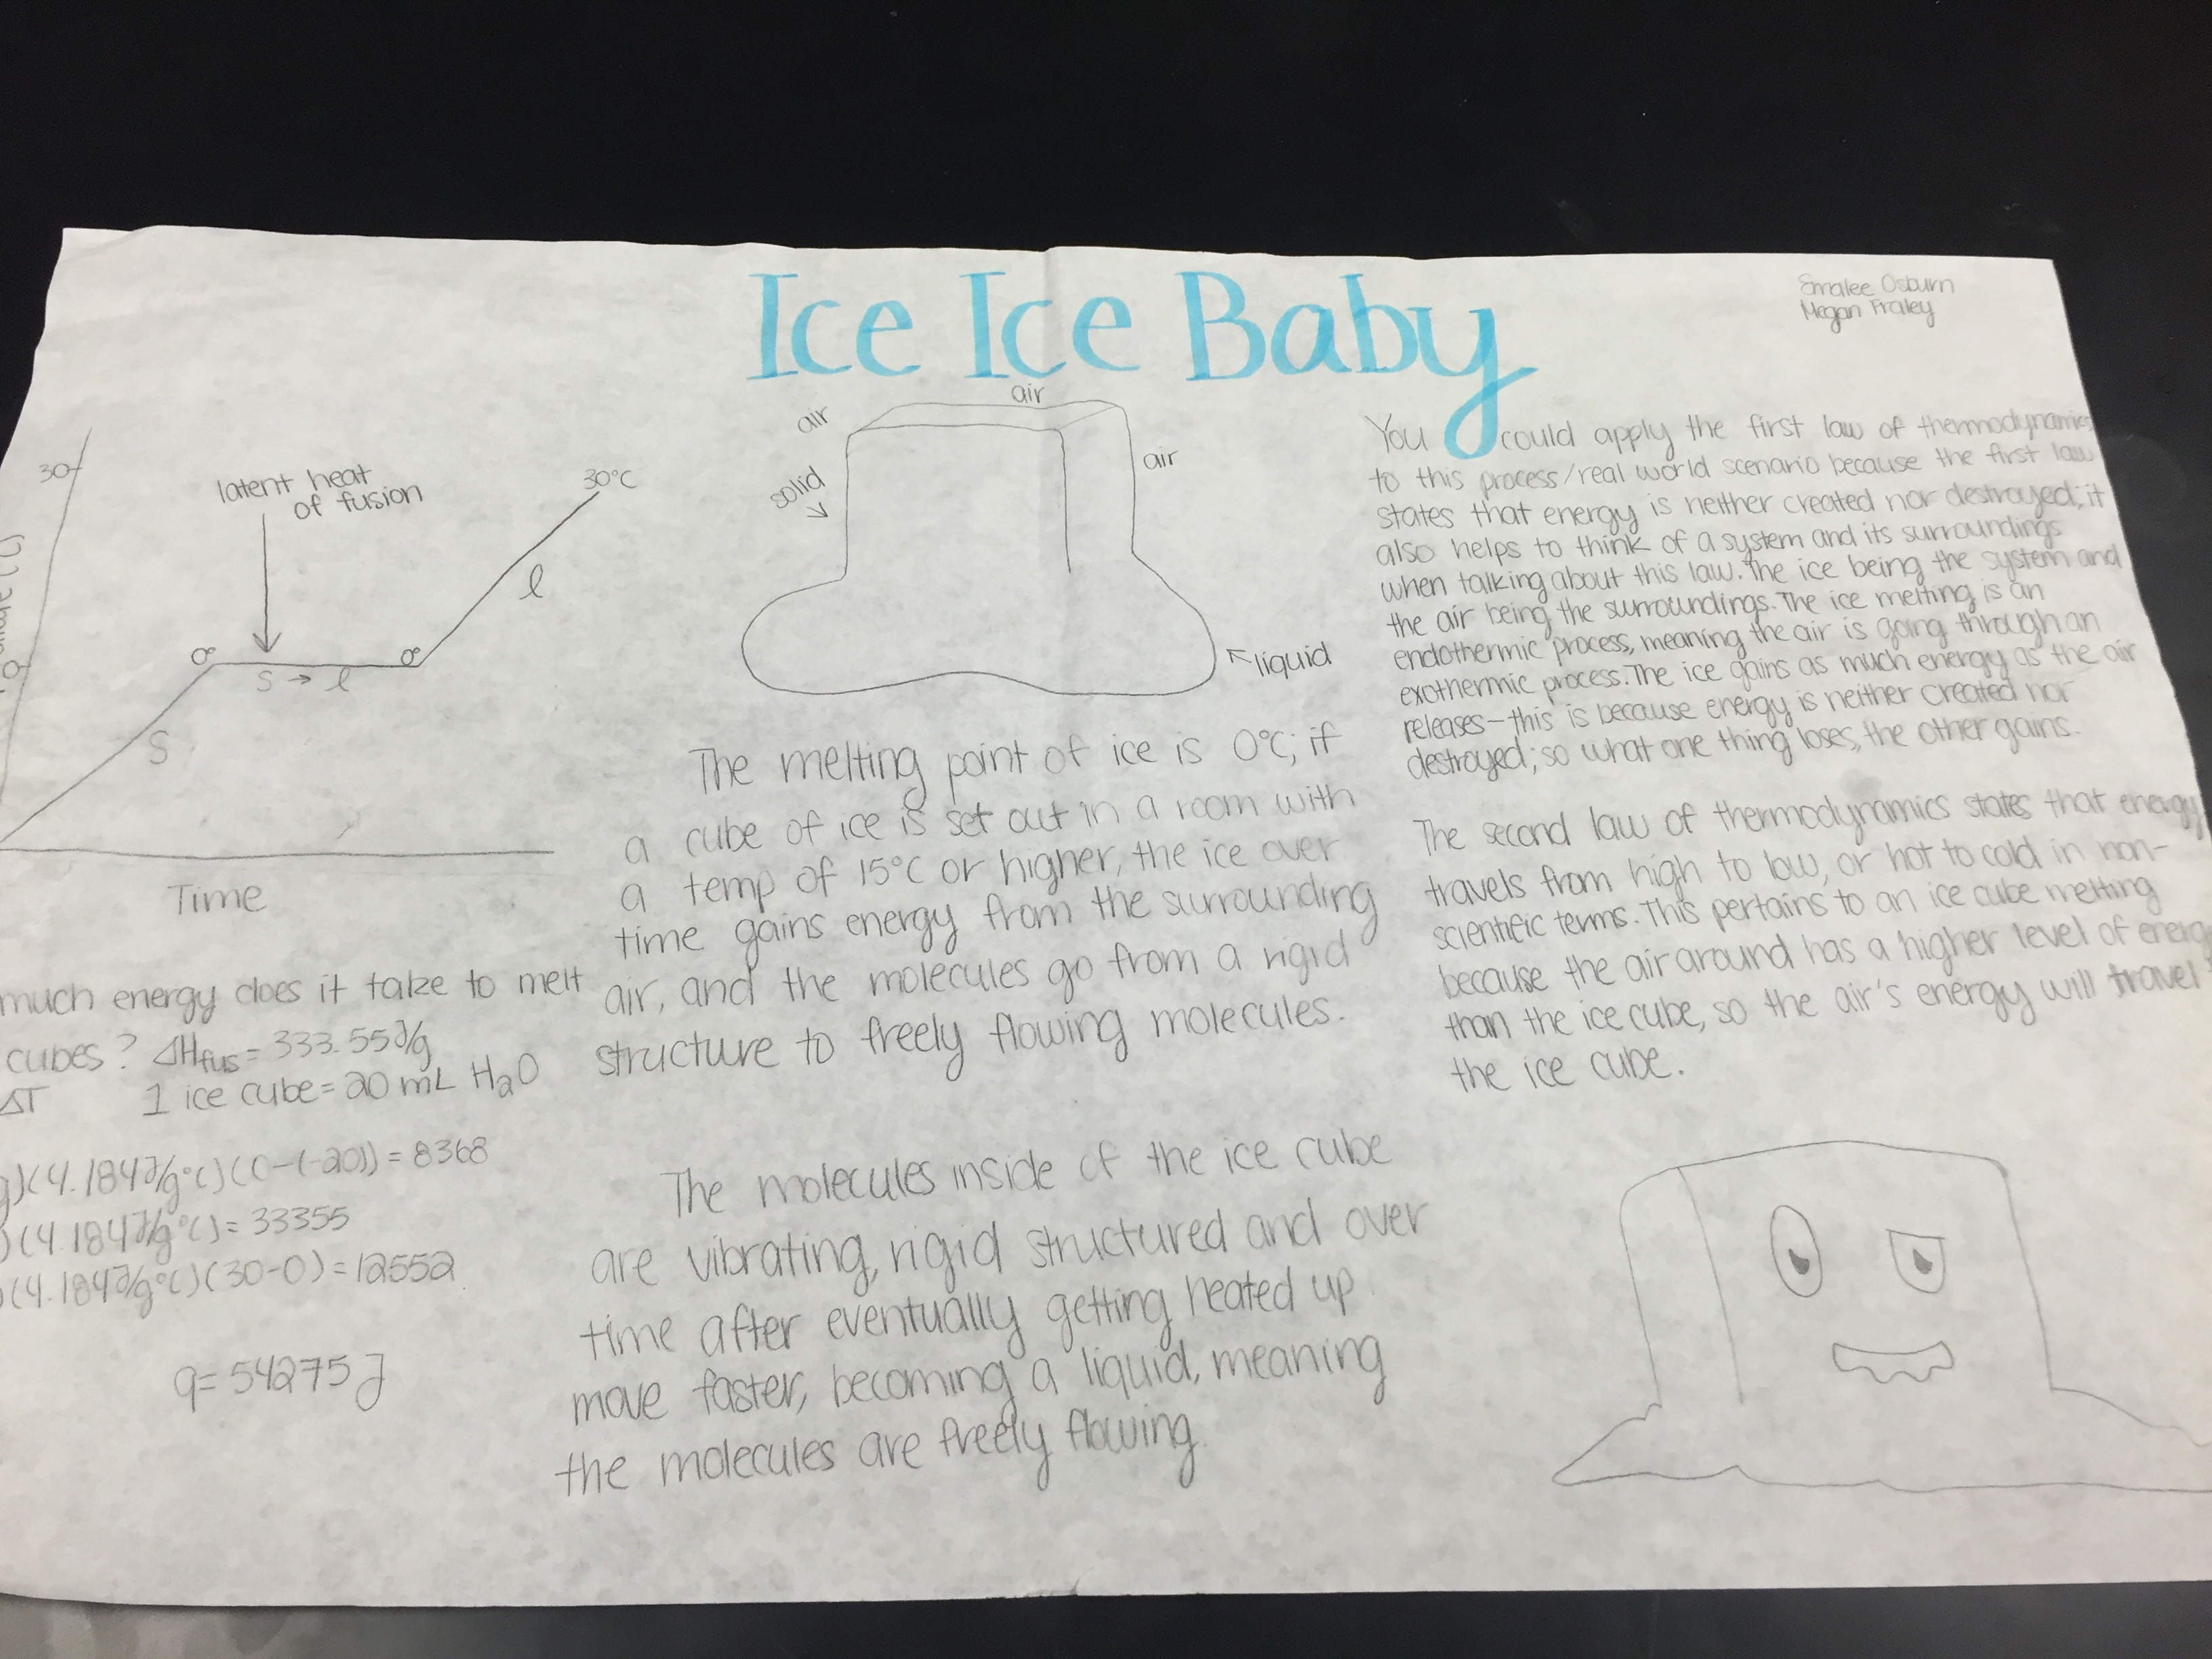 Ice Ice Baby
Emalee Osburn
Megan Fraley
30
latent heat
of fusion
30°C
l
0°
0°
s → l
S
0
Time
much energy does it take to melt
cubes? ΔHfus = 333.55 J/g
ΔT 1 ice cube = 20 mL H2O
g)(4.184 J/g°C)(0-(-20)) = 8368
)(4.184 J/g°C) = 33355
)(4.184 J/g°C)(30-0) = 12552
q = 54275 J
air
air
air
solid
liquid
The melting point of ice is 0°C; if
a cube of ice is set out in a room with
a temp of 15°C or higher, the ice over
time gains energy from the surrounding
air, and the molecules go from a rigid
structure to freely flowing molecules.
The molecules inside of the ice cube
are vibrating, rigid structured and over
time after eventually getting heated up
move faster, becoming a liquid, meaning
the molecules are freely flowing
You could apply the first law of thermodynamics
to this process/real world scenario because the first law
states that energy is neither created nor destroyed; it
also helps to think of a system and its surroundings
when talking about this law. The ice being the system and
the air being the surroundings. The ice melting is an
endothermic process, meaning the air is going through an
exothermic process. The ice gains as much energy as the air
releases—this is because energy is neither created nor
destroyed; so what one thing loses, the other gains.
The second law of thermodynamics states that energy
travels from high to low, or hot to cold in non-
scientific terms. This pertains to an ice cube melting
because the air around has a higher level of energy
than the ice cube, so the air's energy will travel
the ice cube.